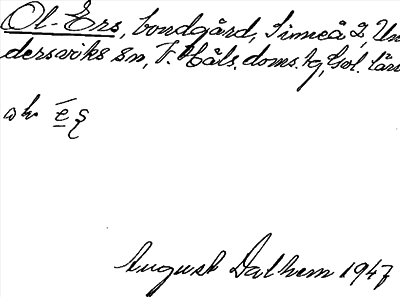 Ol-Ers, bondgård, Simeå 2, Un
dersviks sn, V. Häls. doms. hg, Gvl. län
August Dalhem 1947